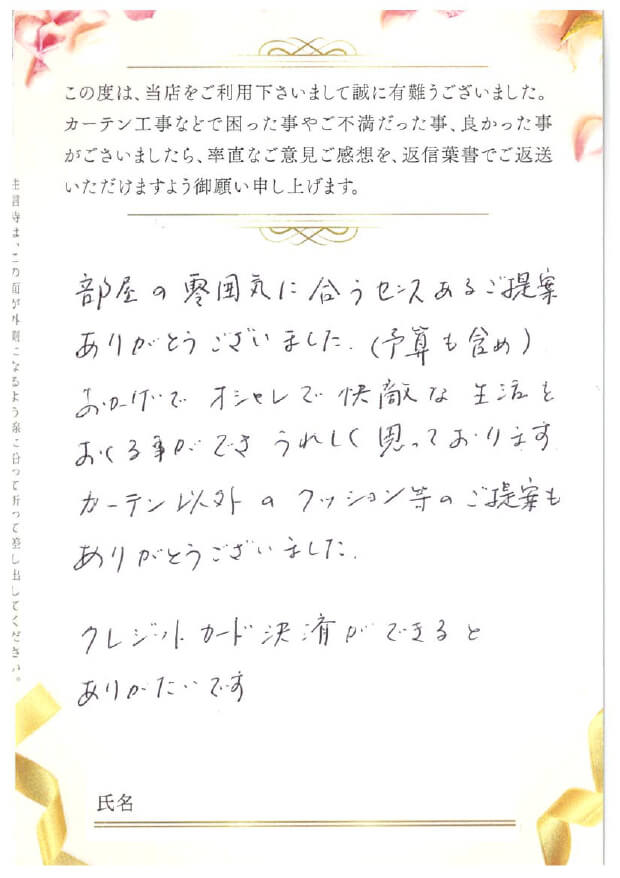 この度は、当店をご利用下さいまして誠に有難うございました。
カーテン工事などで困った事やご不満だった事、良かった事
がございましたら、率直なご意見ご感想を、返信葉書でご返送
いただけますよう御願い申し上げます。
部屋の雰囲気に合うセンスあるご提案
ありがとうございました.(予算も含め)
おかげで オシャレで 快敵な 生活を
おくる事ができ うれしく 思っております
カーテン以外の クッション等のご提案も
ありがとうございました.
クレジットカード決済ができると
ありがたいです
氏名
は、この面が外側になるよう糸に沿って折って差し出してください。